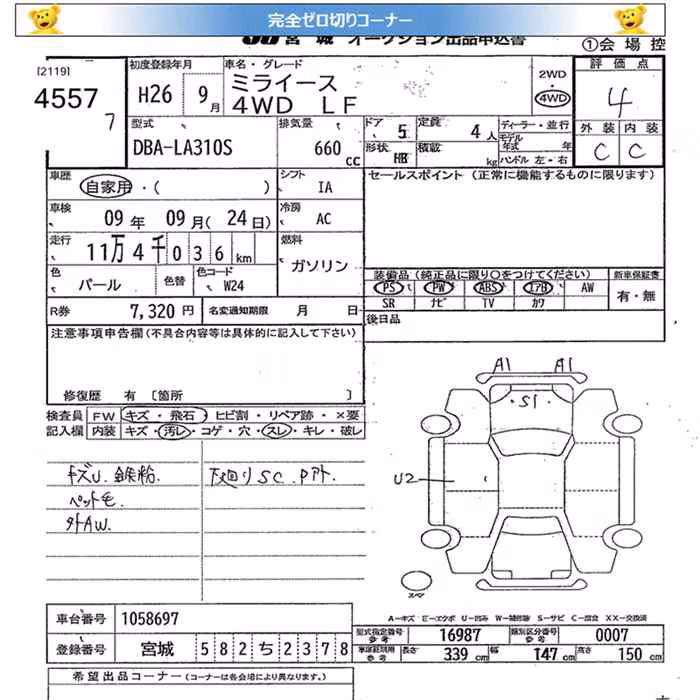 完全ゼロ切りコーナー
JU 宮城 オークション出品申込書
①会 場 控
[2119]
4557
7
初度登録年月
H26 9月
車名・グレード
ミライース
4WD LF
2WD
・
4WD
評価点
4
外装 内装
C C
型式
DBA-LA310S
排気量
660 cc
ドア
5
定員
4人
形状
HB
積載
kg
ディーラー・並行
モデル年式 年
ハンドル 左・右
車歴
自家用・( )
シフト
IA
セールスポイント (正常に機能するものに限ります)
車検
09年 09月(24日)
冷房
AC
走行
11万4千036km
燃料
ガソリン
色
パール
色替
色コード
W24
装備品 (純正品に限り○をつけてください)
PS PW ABS エアB AW
SR ナビ TV カワ
新車保証書
有・無
R券
7,320円
名変通知期限 月 日
後日品
注意事項申告欄(不具合内容等は具体的に記入して下さい)
修復歴 有 [箇所 ]
検査員 FW キズ・飛石・ヒビ割・リペア跡・×要
記入欄 内装 キズ・汚レ・コゲ・穴・スレ・キレ・破レ
キズU. 鉄粉.
下廻りSC. Pアト.
ペット毛.
外AW.
A1 A1
S1
U2
スペア
A=キズ E=エクボ U=凹み W=補修跡 S=サビ C=腐食 XX=交換済
車台番号
1058697
登録番号
宮城 582 ち 2378
型式指定番号
参考
16987
類別区分番号
参考
0007
車庫証明用
参考
長さ 339cm
幅 147cm
高さ 150cm
希望出品コーナー (コーナーは各会場により異なります。)